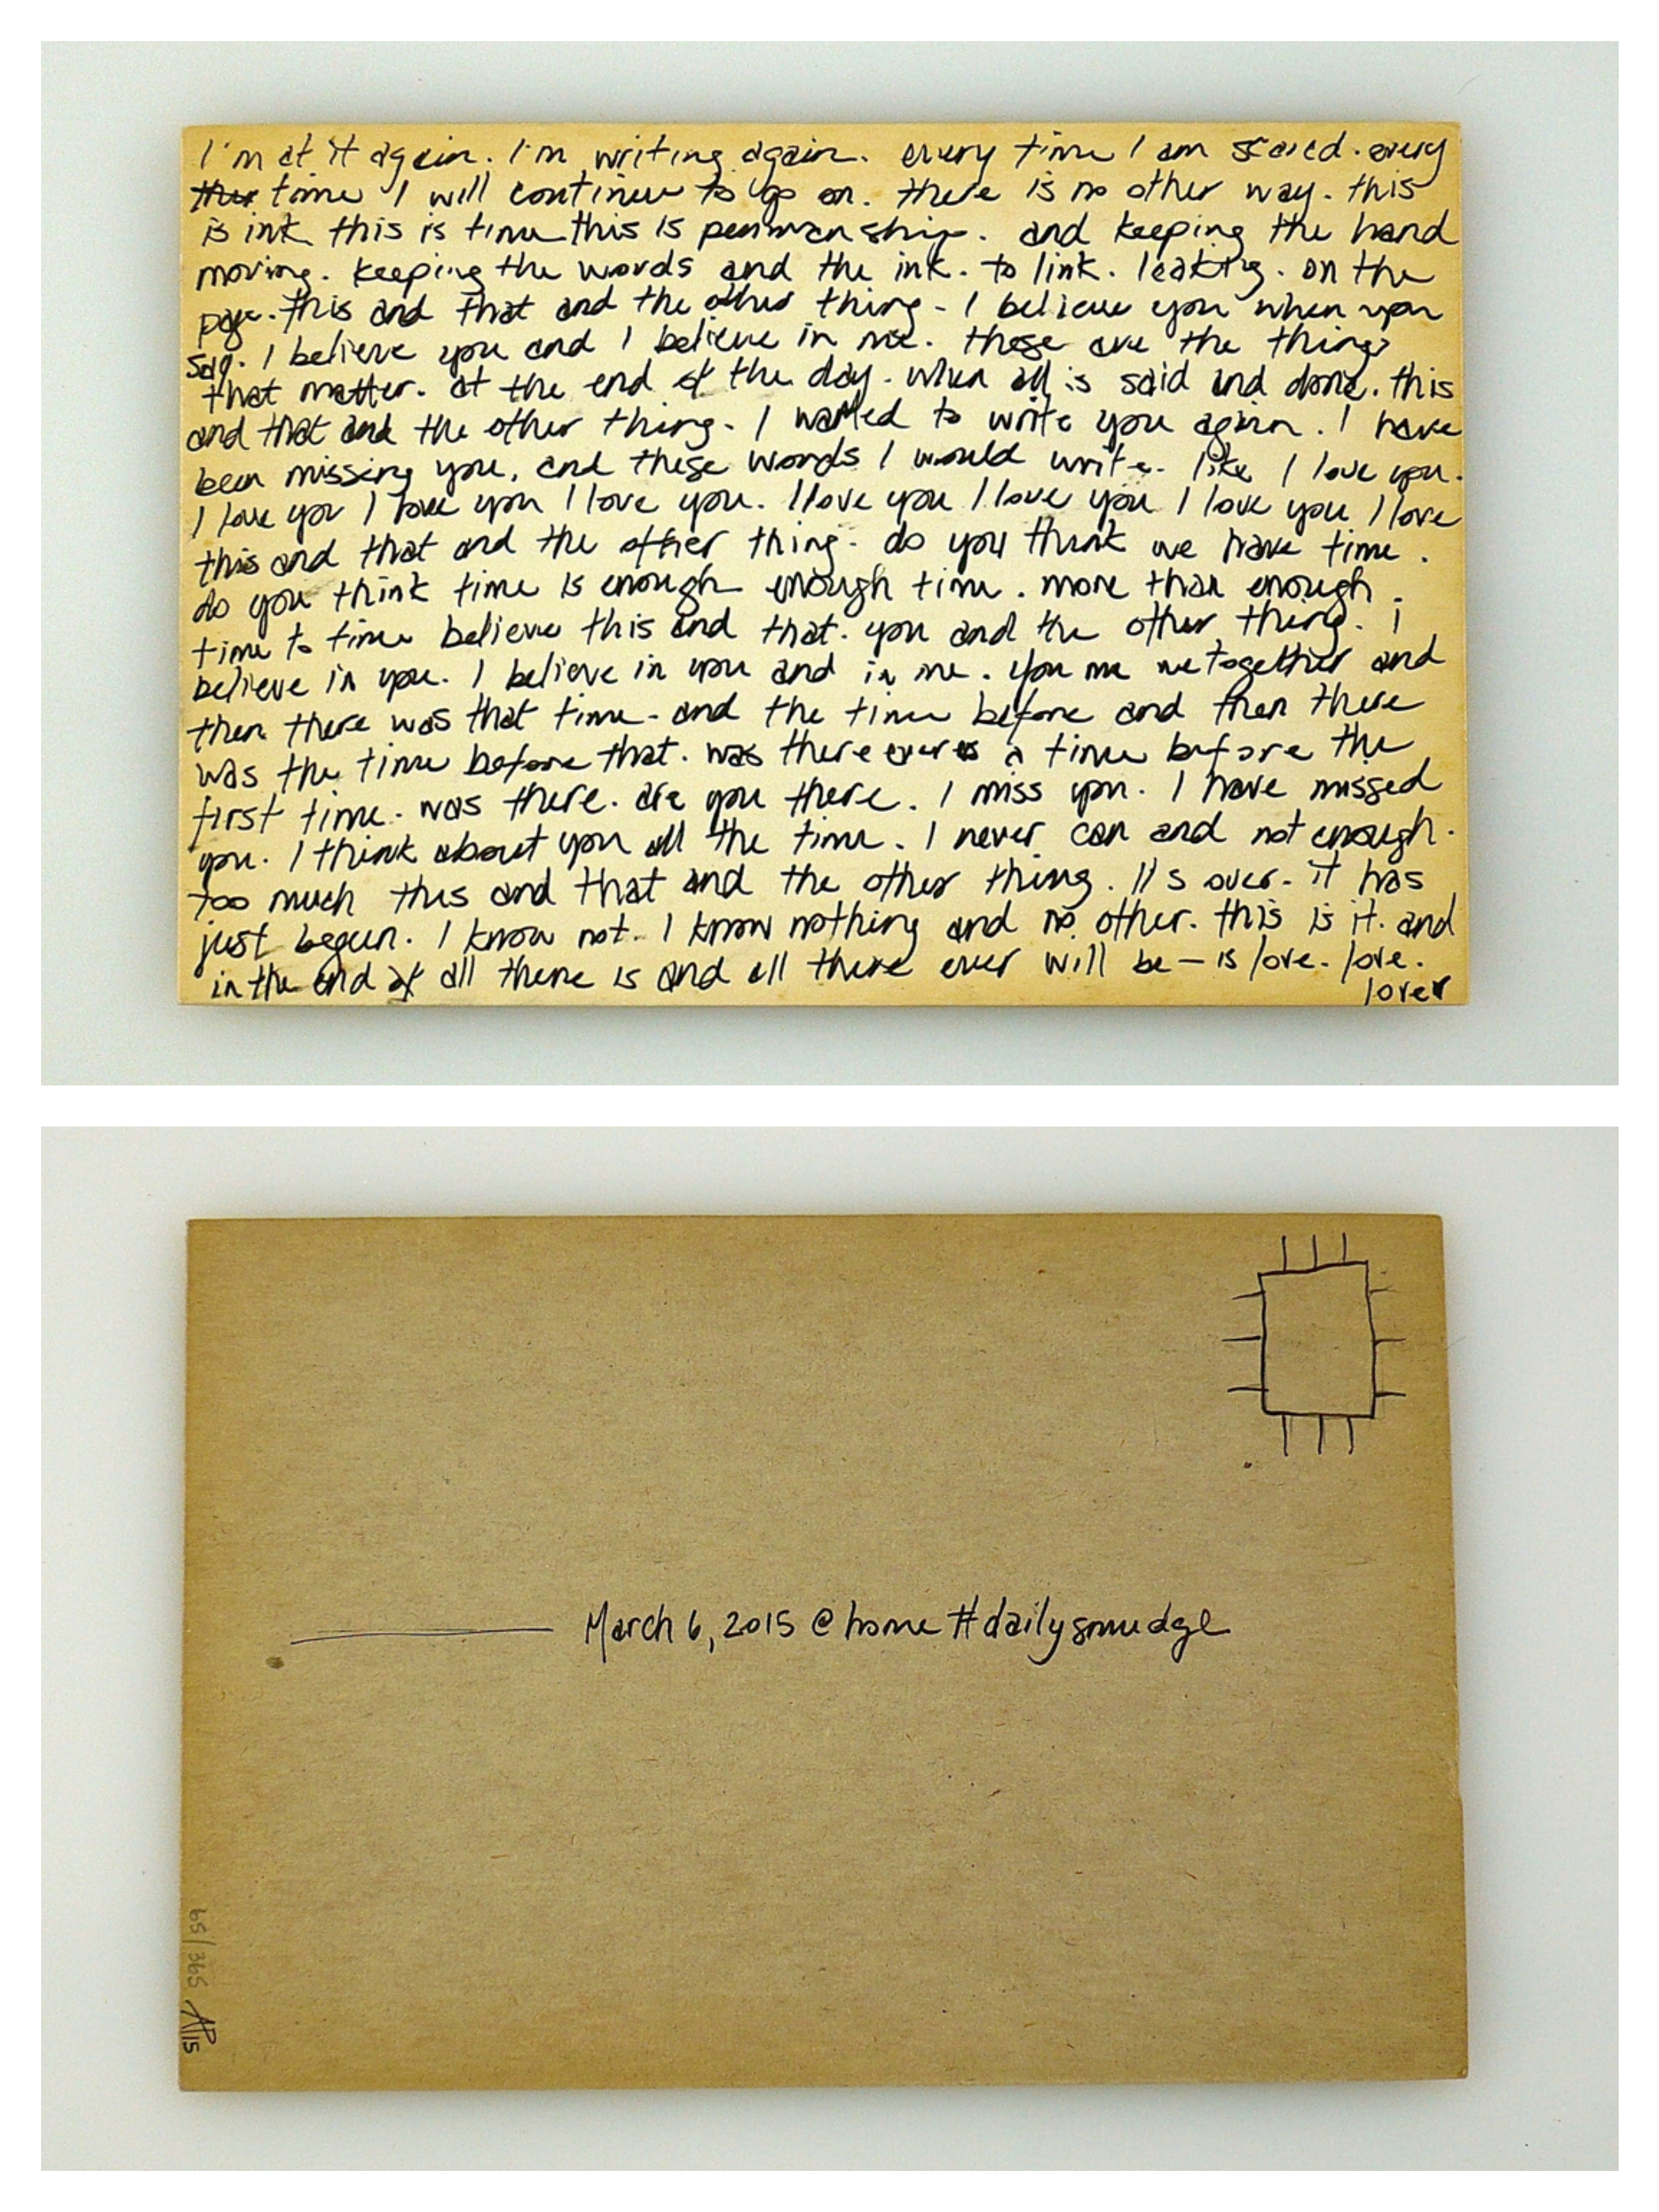 I'm at it again. I'm writing again. every time I am scared. every
time I will continue to go on. there is no other way. this
is ink this is time this is penmanship. and keeping the hand
moving. keeping the words and the ink. to link. leaking. on the
page. this and that and the other thing. I believe you when you
say. I believe you and I believe in me. these are the things
that matter. at the end of the day. when all is said and done. this
and that and the other thing. I wanted to write you again. I have
been missing you, and these words I would write. like I love you.
I love you I love you I love you. I love you I love you I love you I love
this and that and the other thing. do you think we have time.
do you think time is enough enough time. more than enough.
time to time believe this and that. you and the other thing. i
believe in you. I believe in you and in me. you me we together and
then there was that time. and the time before and then there
was the time before that. was there ever a time before the
first time. was there. are you there. I miss you. I have missed
you. I think about you all the time. I never can and not enough.
too much this and that and the other thing. It's over. it has
just begun. I know not. I know nothing and no other. this is it. and
in the end of all there is and all there ever will be — is love. love.
lover
March 6, 2015 @home #dailysmudge
65/365 AP15